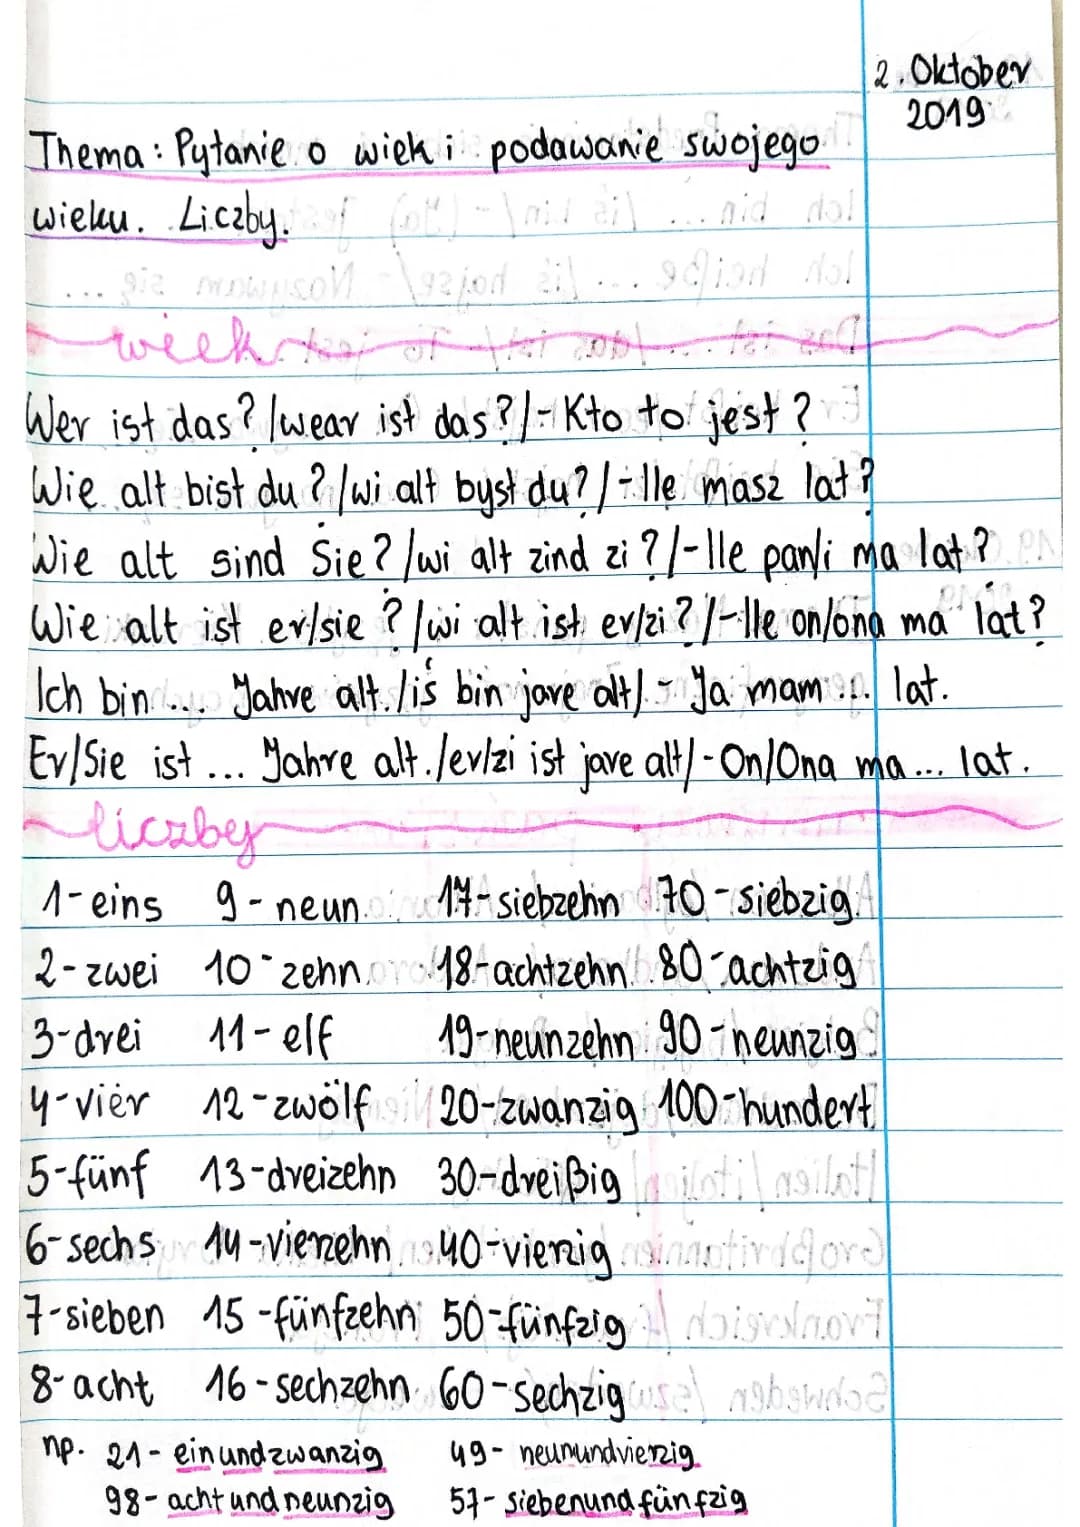 2. Oktober
2019
Thema: Pytanie o wiek i podawanie swojego
wieku. Liczby.
wiek
Wer ist das? /wear ist das?/ - Kto to jest?
Wie alt bist du? /wi alt byst du?/ - Ile masz lat?
Wie alt sind Sie? /wi alt zind zi?/ - Ile pan/i ma lat?
Wie alt ist er/sie? /wi alt ist er/zi?/ - Ile on/ona ma lat?
Ich bin ... Jahre alt. /iś bin jare alt/ - Ja mam ... lat.
Er/Sie ist ... Jahre alt. /er/zi ist jare alt/ - On/Ona ma ... lat.
liczby
1-eins 9-neun 17-siebzehn 70-siebzig
2-zwei 10-zehn 18-achtzehn 80-achtzig
3-drei 11-elf 19-neunzehn 90-neunzig
4-vier 12-zwölf 20-zwanzig 100-hundert
5-fünf 13-dreizehn 30-dreißig
6-sechs 14-vierzehn 40-vierzig
7-sieben 15-fünfzehn 50-fünfzig
8-acht 16-sechzehn 60-sechzig
np. 21-einundzwanzig 49-neunundvierzig
98-achtundneunzig 57-siebenundfünfzig